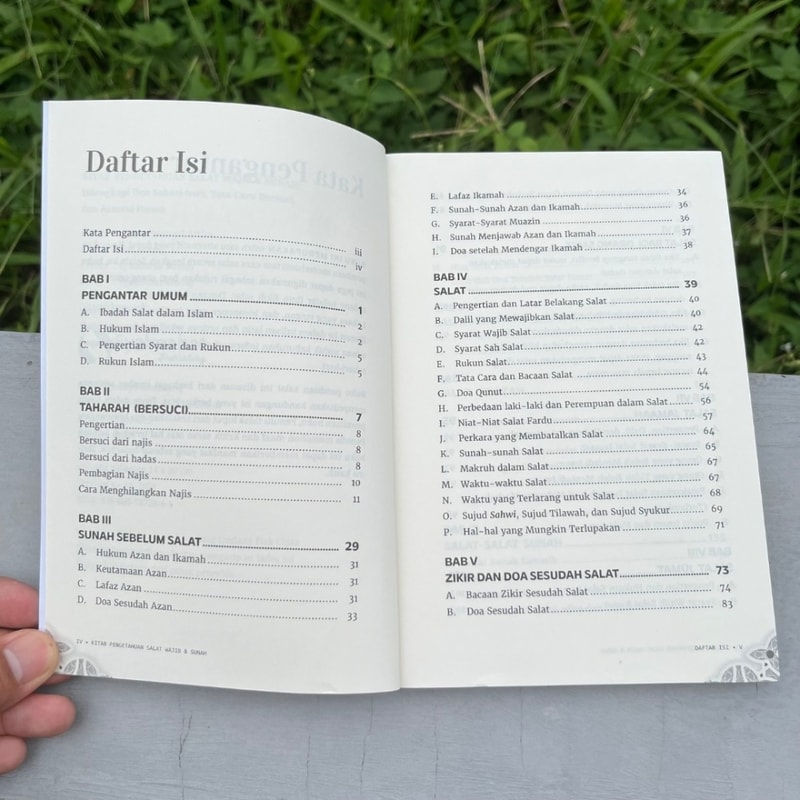 Daftar Isi
Kata Pengantar ..... iii
Daftar Isi ..... iv
BAB I
PENGANTAR UMUM ..... 1
A. Ibadah Salat dalam Islam ..... 2
B. Hukum Islam ..... 2
C. Pengertian Syarat dan Rukun ..... 5
D. Rukun Islam ..... 5
BAB II
TAHARAH (BERSUCI) ..... 7
Pengertian ..... 8
Bersuci dari najis ..... 8
Bersuci dari hadas ..... 8
Pembagian Najis ..... 10
Cara Menghilangkan Najis ..... 11
BAB III
SUNAH SEBELUM SALAT ..... 29
A. Hukum Azan dan Ikamah ..... 31
B. Keutamaan Azan ..... 31
C. Lafaz Azan ..... 31
D. Doa Sesudah Azan ..... 33
IV • KITAB PENGETAHUAN SALAT WAJIB & SUNAH
E. Lafaz Ikamah ..... 34
F. Sunah-Sunah Azan dan Ikamah ..... 36
G. Syarat-Syarat Muazin ..... 36
H. Sunah Menjawab Azan dan Ikamah ..... 37
I. Doa setelah Mendengar Ikamah ..... 38
BAB IV
SALAT ..... 39
A. Pengertian dan Latar Belakang Salat ..... 40
B. Dalil yang Mewajibkan Salat ..... 40
C. Syarat Wajib Salat ..... 42
D. Syarat Sah Salat ..... 42
E. Rukun Salat ..... 43
F. Tata Cara dan Bacaan Salat ..... 44
G. Doa Qunut ..... 54
H. Perbedaan laki-laki dan Perempuan dalam Salat ..... 56
I. Niat-Niat Salat Fardu ..... 57
J. Perkara yang Membatalkan Salat ..... 64
K. Sunah-sunah Salat ..... 65
L. Makruh dalam Salat ..... 67
M. Waktu-waktu Salat ..... 67
N. Waktu yang Terlarang untuk Salat ..... 68
O. Sujud Sahwi, Sujud Tilawah, dan Sujud Syukur ..... 69
P. Hal-hal yang Mungkin Terlupakan ..... 71
BAB V
ZIKIR DAN DOA SESUDAH SALAT ..... 73
A. Bacaan Zikir Sesudah Salat ..... 74
B. Doa Sesudah Salat ..... 83
DAFTAR ISI • V